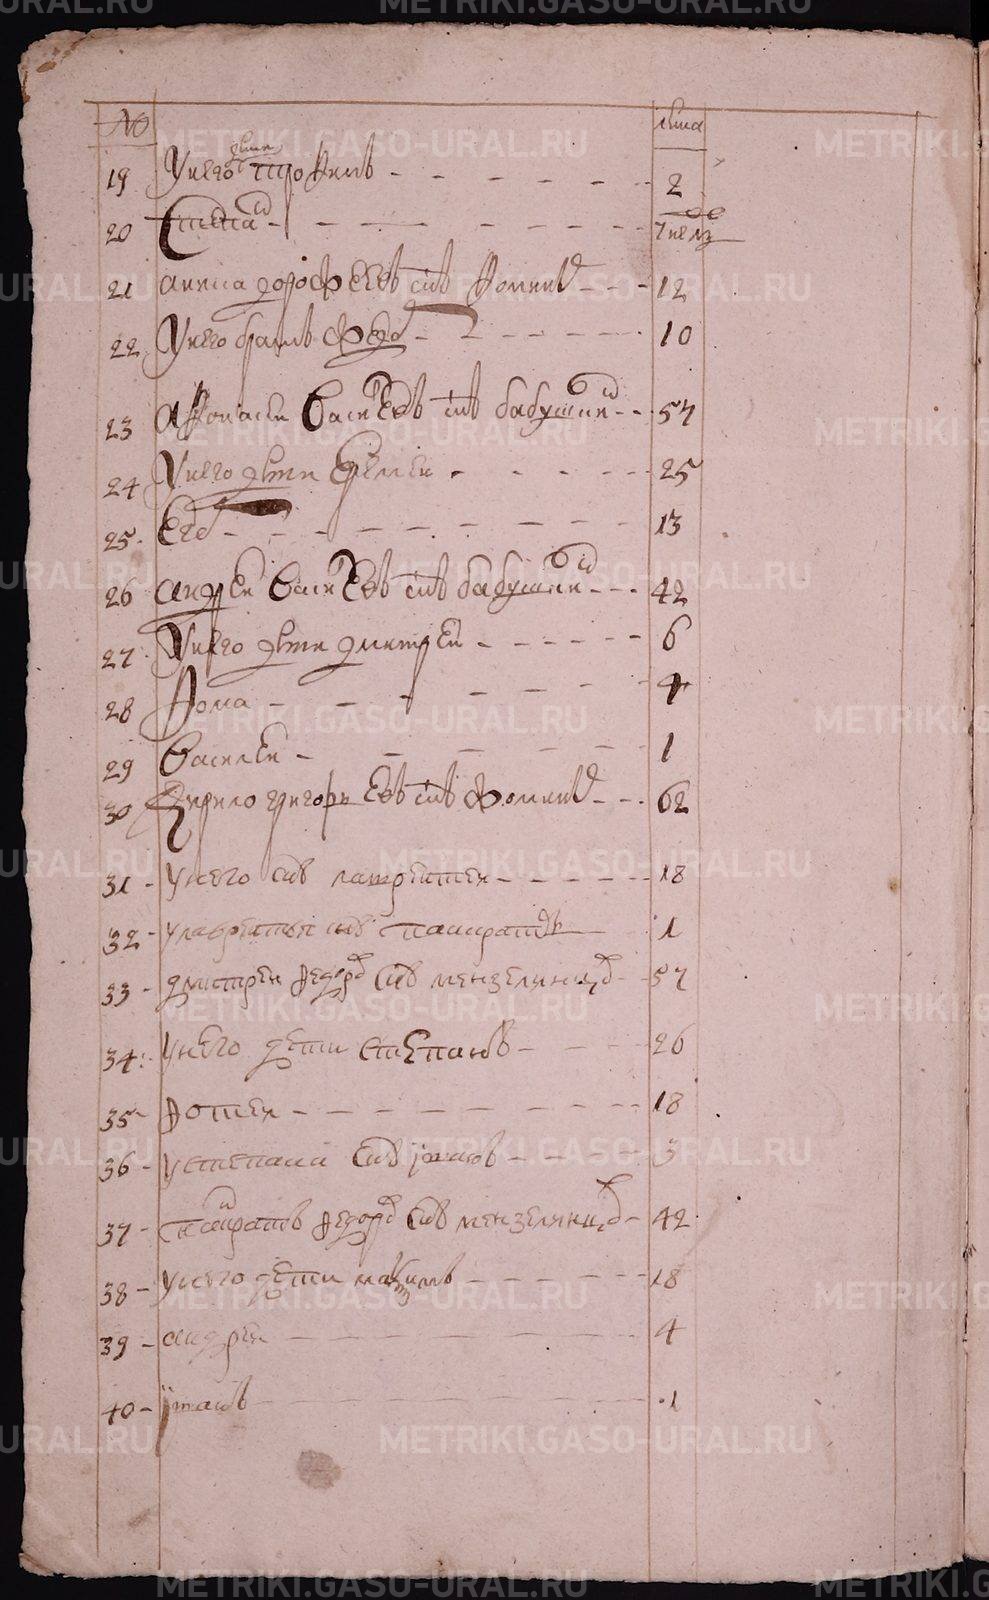 № лета
19 У него дети трофимъ 2
20 Степан 7 нед
21 Никита дорофеевъ снъ фомины 12
22 У него братъ Федо 10
23 Афонасеи Василевъ снъ бабушкин 57
24 У него дети Еремеи 25
25 Его 13
26 андреи Василевъ снъ бабушкин 42
27 У него дети дмитреи 6
28 Фома 4
29 Василеи 1
30 Кирило григорьевъ снъ Фомины 62
31 У него снъ лаврентеи 18
32 У лаврентья снъ панкратъ 1
33 дмитреи федоро снъ мензелинцо 57
34 У него дети степанъ 26
35 фотеи 18
36 У степана снъ iванъ 3
37 панкратъ федоро снъ мензелинцо 42
38 У него дети максимъ 18
39 андреи 4
40 iванъ 1
METRIKI.GASO-URAL.RU